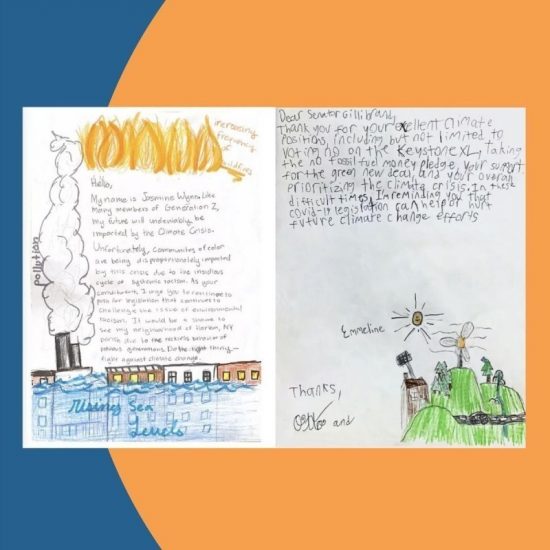 increasing
frequency
of
wildfires
pollution
Hello,
My name is Jasmine Wynn. Like
many members of Generation Z,
my future will undeniably be
impacted by the Climate Crisis.
Unfortunately, communities of color
are being disproportionately impacted
by this crisis due to the insidious
cycle of systemic racism. As your
constituent, I urge you to continue to
push for legislation that continues to
challenge the issue of environmental
racism. It would be a shame to
see my neighborhood of Harlem, NY
perish due to the reckless behavior of
previous generations. Do the right thing—
fight against climate change.
Rising Sea
Levels
Dear Senator Gillibrand,
Thank you for your exellent Climate
Positions, including but not limited to
voting no on the Keystone XL, taking
the no fossil fuel money pledge, your support
for the green new deal, and your overall
prioritizing the climate crisis. In these
difficult times, I'm reminding you that
covid-19 legislation can help or hurt
future climate change efforts
Thanks,
and
Emmeline